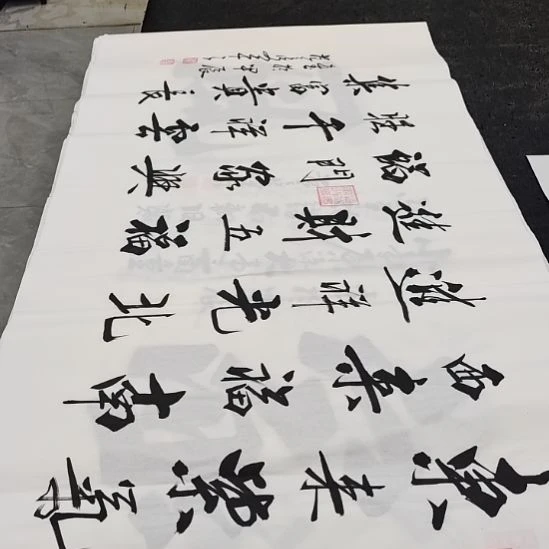 東来紫氣
西来福南
進祥光北
進財五福
臨門家興
旺千祥雲
集富貴長
甲辰